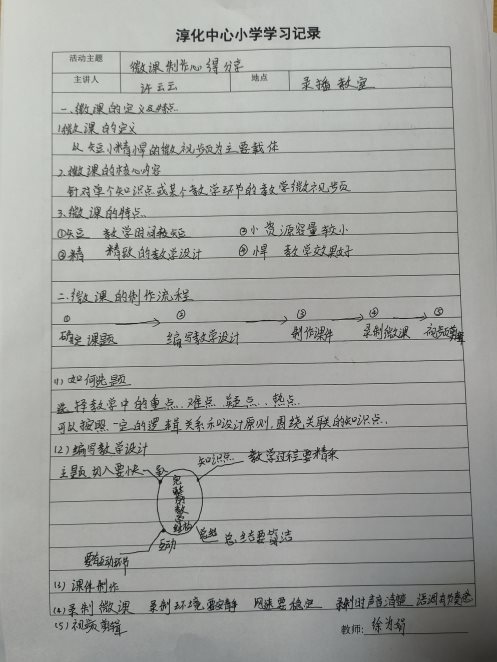 淳化中心小学学习记录
活动主题 微课制作心得分享
主讲人 许云云 地点 录播教室
一.微课的定义及特点.
1.微课的定义
以短小精悍的微视频为主要载体
2.微课的核心内容
针对单个知识点或某个教学环节的教学微视频
3.微课的特点.
①短 教学时间较短 ③小 资源容量较小
②精 精致的教学设计 ④悍 教学效果好
二.微课的制作流程
① ② ③ ④ ⑤
确定课题 编写教学设计 制作课件 录制微课 视频剪辑
(1) 如何选题
选择教学中的重点、难点、疑点、热点.
可以按照一定的逻辑关系和设计原则,围绕关联的知识点.
(2) 编写教学设计
主题切入要快 知识点 教学过程要精采
完整的教学结构
总结 总结要简洁
互动
要有互动环节
(3) 课件制作
(4) 录制微课 录制环境要安静 网速要稳定 录制时声音清楚 语调有节奏感
(5) 视频剪辑
教师: